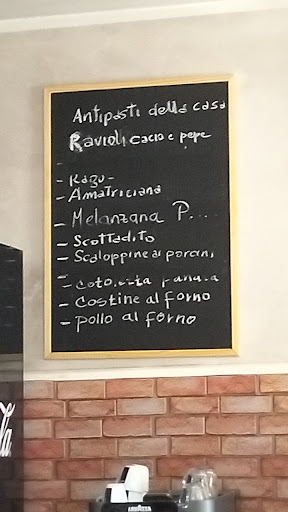 Antipasti della casa
Ravioli cacio e pepe
-
- Ragu -
- Amatriciana
- Melanzana P....
- Scottadito
- Scaloppine ai porcini
- cotoletta panata
- Costine al forno
- pollo al forno
LAVAZZA